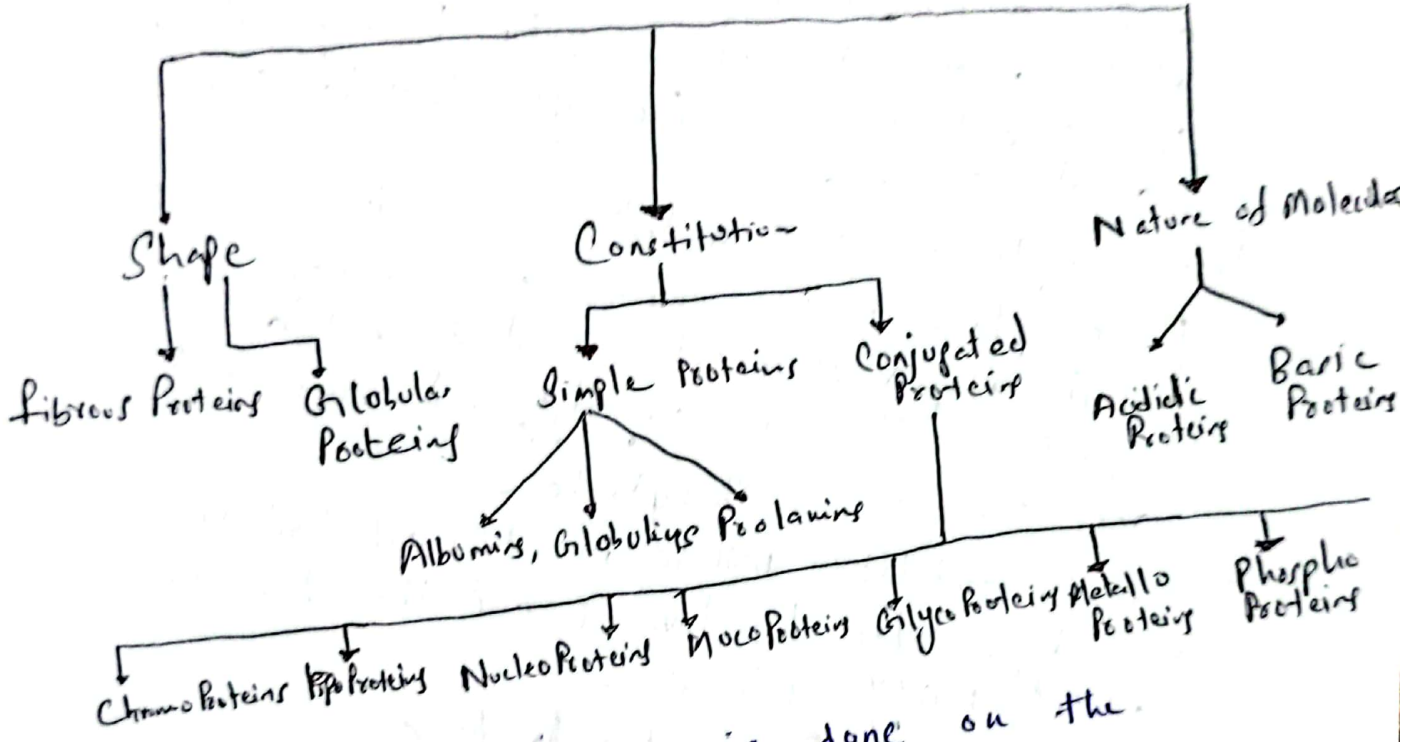 Shape
Constitution
Nature of Molecules
Fibrous Proteins
Globular
Proteins
Simple Proteins
Conjugated
Proteins
Acidic
Proteins
Basic
Proteins
Albumins, Globulins Prolamins
ChromoProteins LipoProteins NucleoProteins MucoProteins GlycoProteins Metallo
Proteins
Phospho
Proteins
done on the